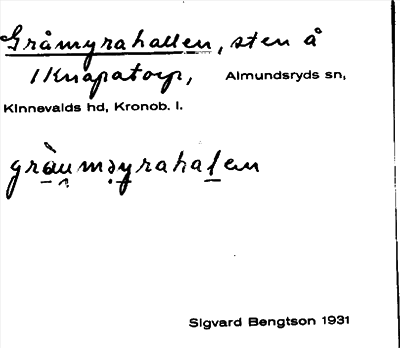 Gråmyrahallen, sten å
1 Knapatorp, Almundsryds sn,
Kinnevalds hd, Kronob. l.
gràu̯məyrahalen
Sigvard Bengtson 1931